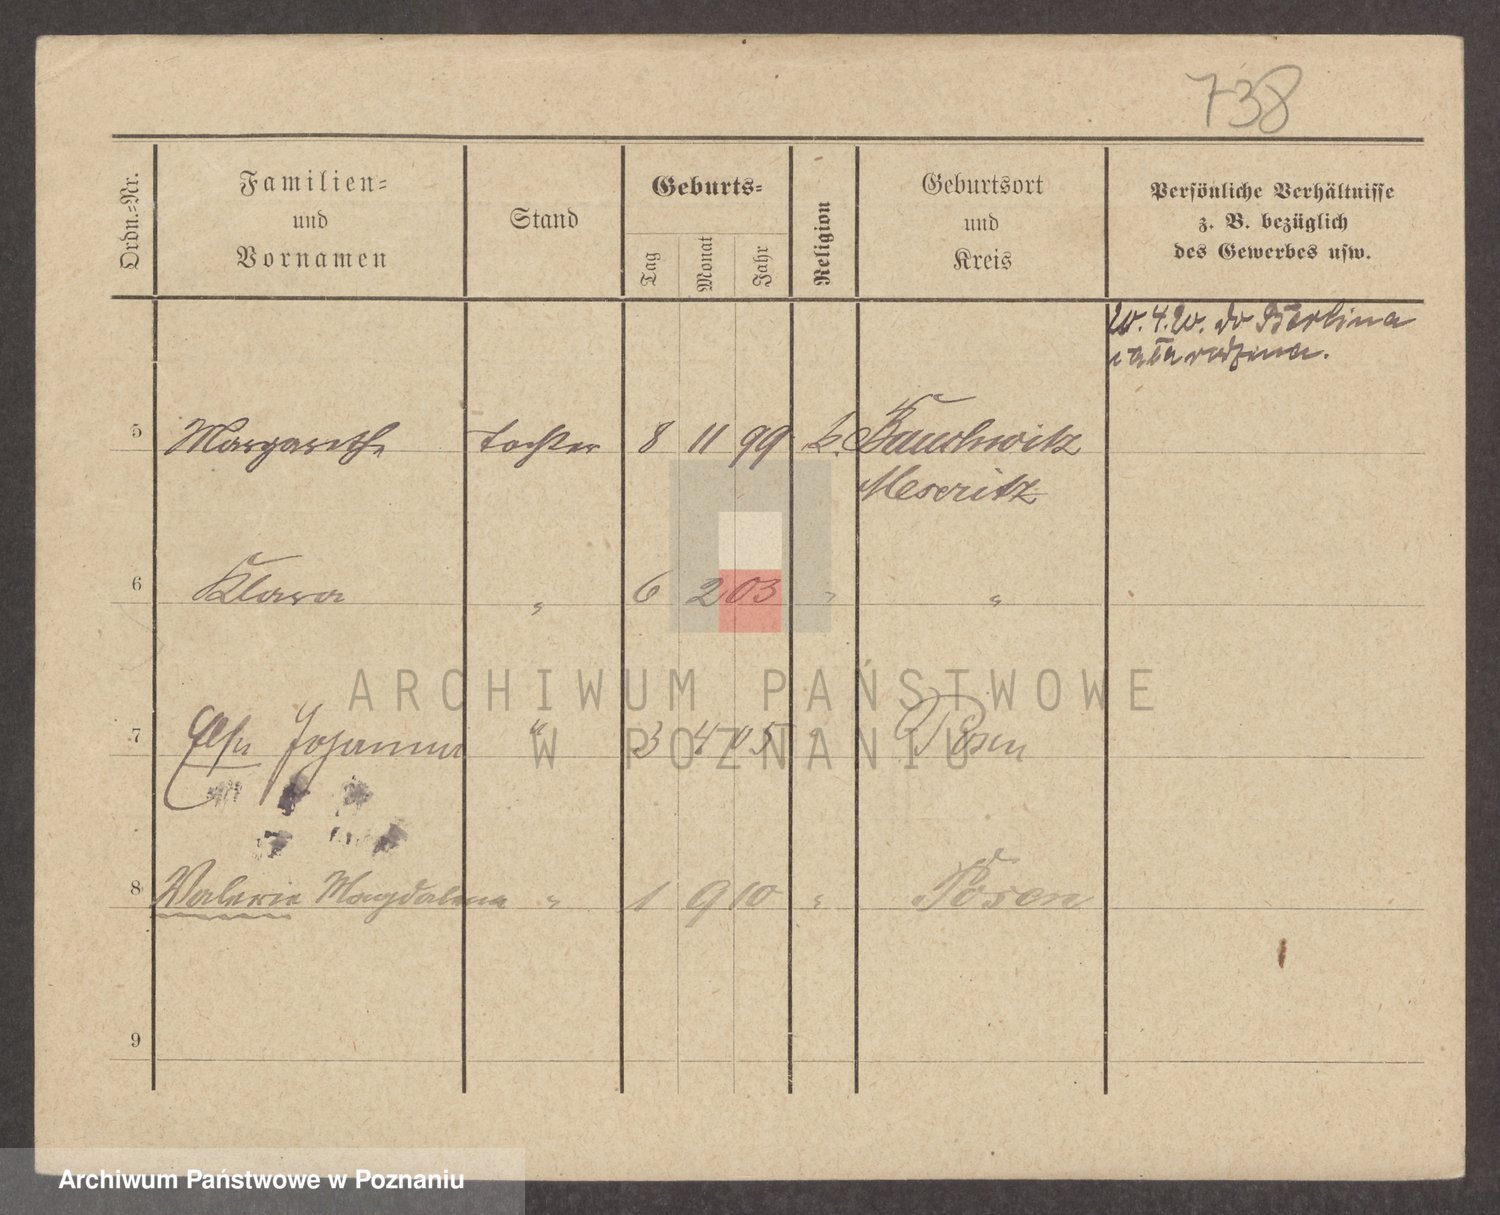 738
Ordn.-Nr.
Familien-
und
Vornamen
Stand
Geburts-
Tag
Monat
Jahr
Religion
Geburtsort
und
Kreis
Persönliche Verhältnisse
z. B. bezüglich
des Gewerbes usw.
20. 4. 20. do Berlina
cała rodzina.
5 Margarethe Tochter 8 11 99 k. Bauchwitz
Meseritz
6 Klara " 6 2 03 " "
7 Else Johanna " 3 4 05 " Posen
8 Valerie Magdalena " 1 9 10 " Posen
9
ARCHIWUM PAŃSTWOWE
W POZNANIU
Archiwum Państwowe w Poznaniu